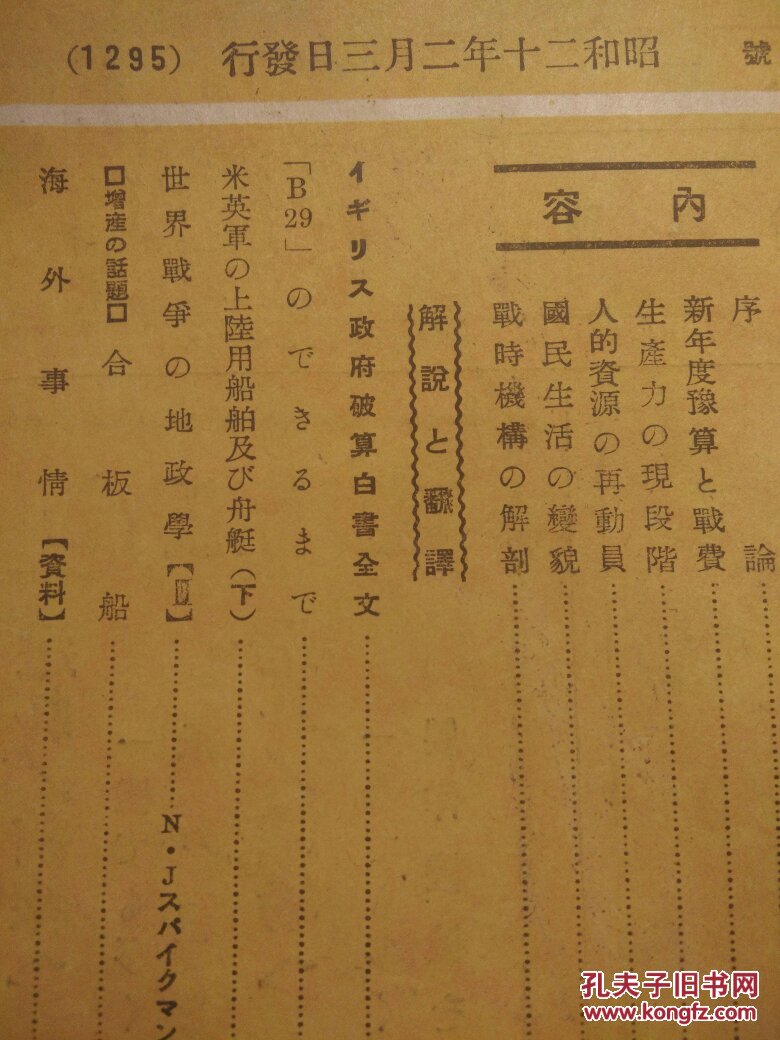 號
昭和二十年二月三日發行
(1295)
內容
序論
新年度豫算と戰費
生產力の現段階
人的資源の再動員
國民生活の變貌
戰時機構の解剖
解說と飜譯
イギリス政府破算白書全文
「B29」のできるまで
米英軍の上陸用船舶及び舟艇(下)
世界戰爭の地政學【】
N・Jスパイクマン
□增産の話題□合板船
海外事情【資料】
孔夫子旧书网
www.kongfz.com